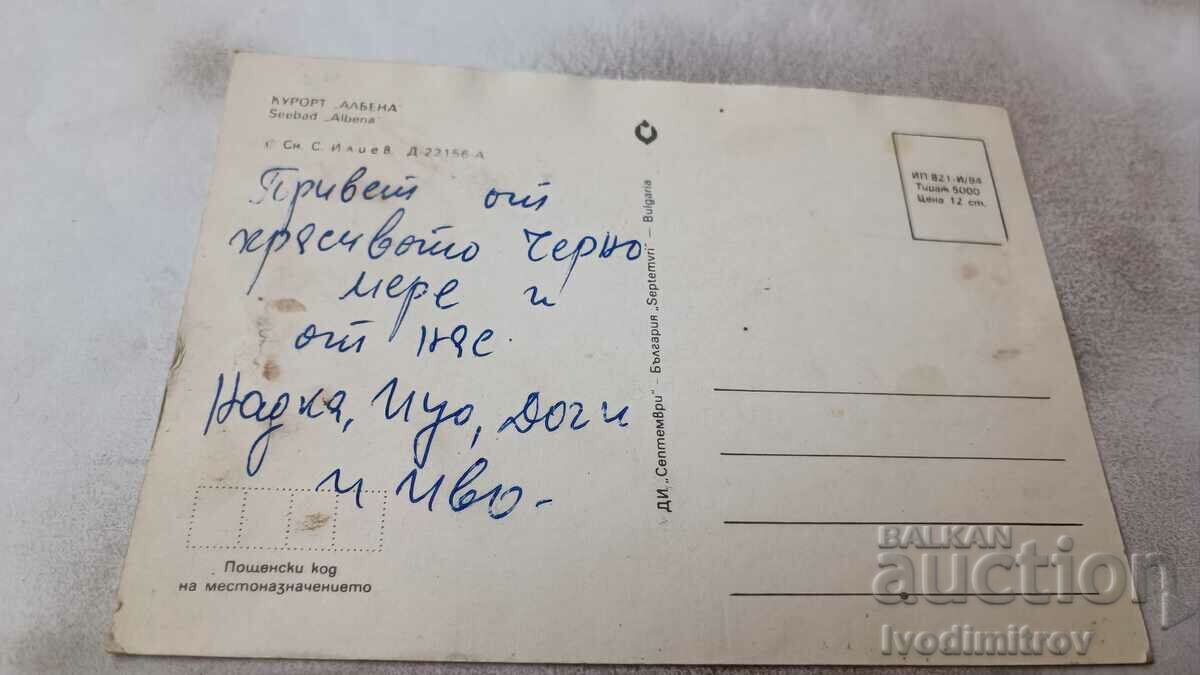 КУРОРТ „АЛБЕНА“
Seebad „Albena“
© Сн. С. Илиев. Д-22156-А
Привет от
красивото Черно
мере и
от нас.
Надка, Цуо, Доги
и Иво-
Пощенски код
на местоназначението
ДИ „Септември“ – България „Septemvri“ – Bulgaria
ИП 821-И/84
Тираж 5000
Цена 12 ст.
BALKAN
auction
Ivodimitrov